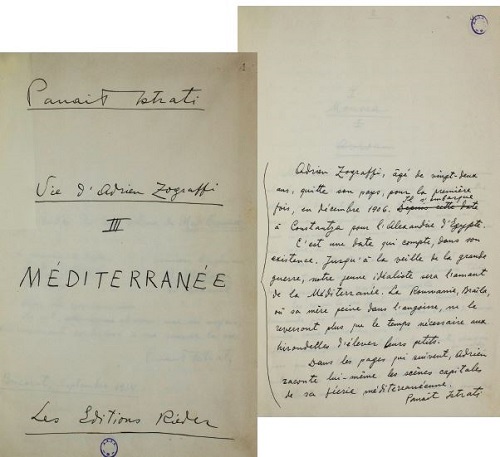 Panait Istrati
Vie d'Adrien Zograffi
III
MÉDITERRANÉE
Les Editions Rieder
Adrien Zograffi, âgé de vingt-deux
ans, quitte son pays, pour la première
fois, en décembre 1906. Il s'embarque
à Constantza pour l'Alexandrie d'Egypte.
C'est une date qui compte, dans son
existence. Jusqu'à la veille de la grande
guerre, notre jeune idéaliste sera l'amant
de la Méditerranée. La Roumanie, Braïla,
où sa mère peine dans l'angoisse, ne le
reverront plus que le temps nécessaire aux
hirondelles d'élever leurs petits.
Dans les pages qui suivent, Adrien
raconte lui-même les scènes capitales
de sa féerie méditerranéenne.
Panaït Istrati